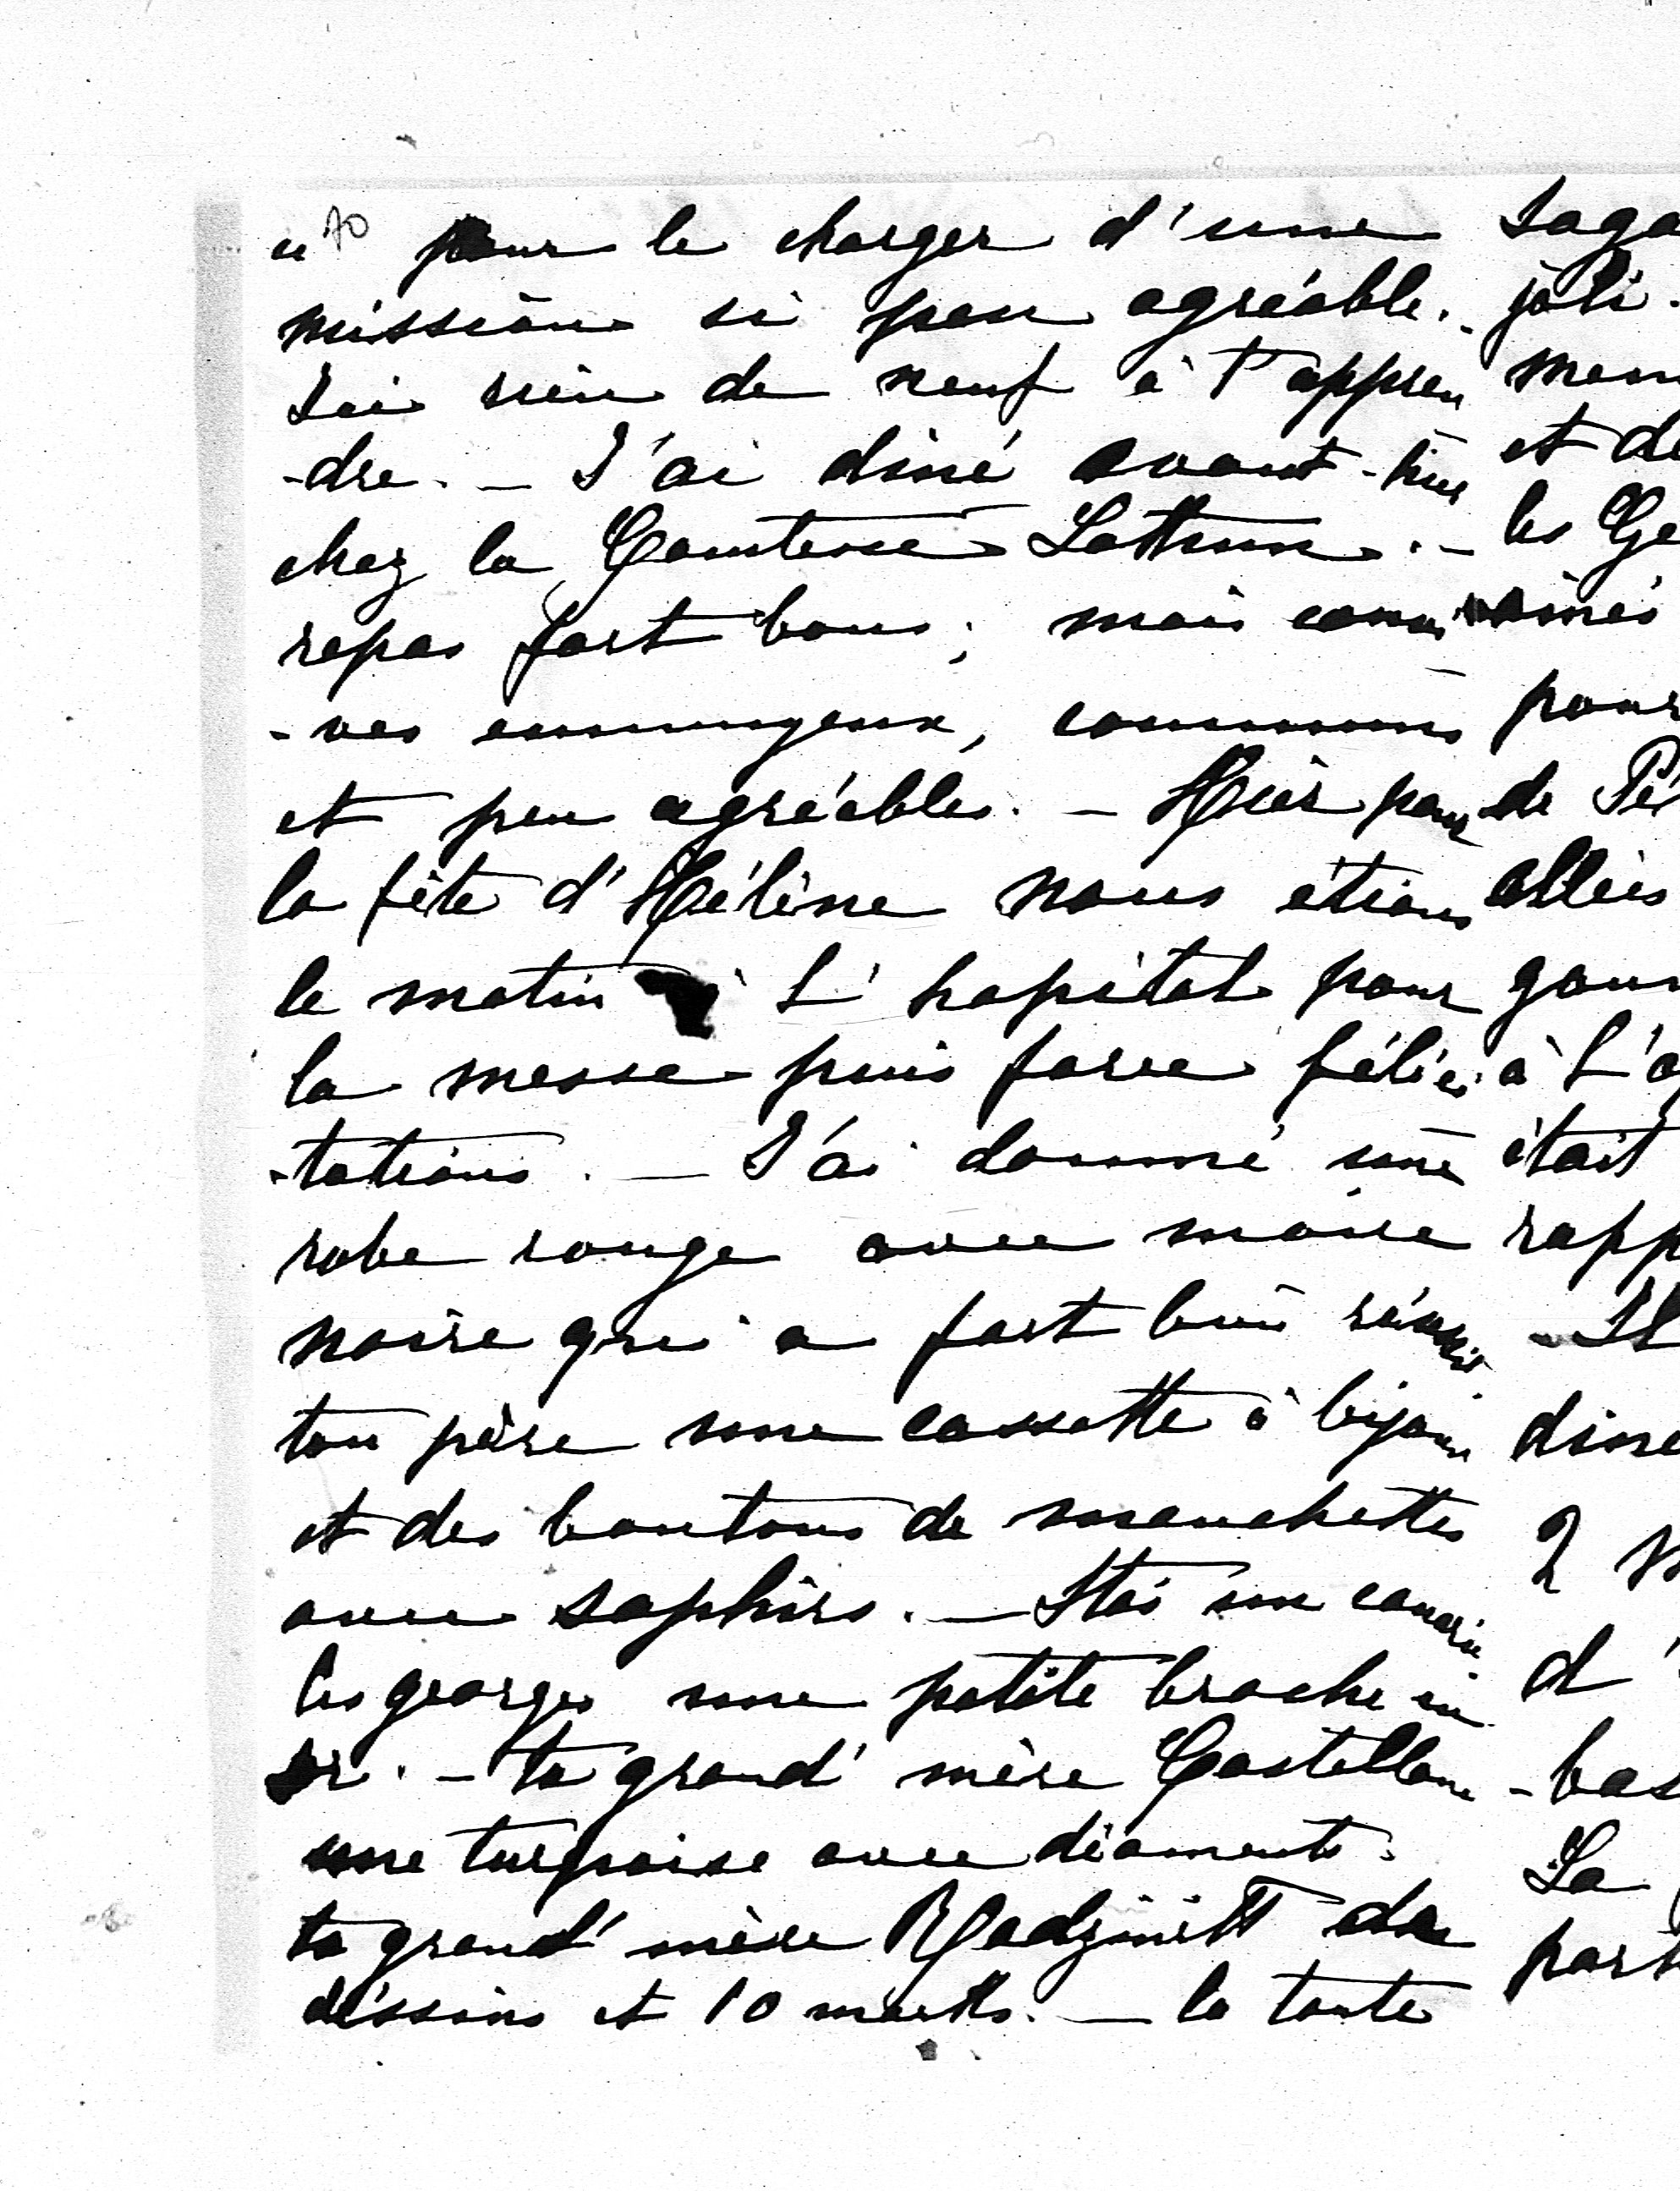 pour le charger d'une
mission si peu agréable. -
J'ai rien de neuf à t'appren
-dre. - J'ai diné avant-hier
chez la Comtesse Lottum. -
repas fort bons; mais convi
-ves ennuyeux, communs
et peu agréables. - Hier pour
la fête d'Hélène nous étions
le matin à l'hopital pour
la messe puis force félici
-tations. - J'ai donné une
robe rouge avec moire
noire qui a fort bien réussi.
ton père une cassette à bijoux
et des boutons de manchettes
avec saphirs. - Stas un canari
les georges une petite broche en
or. - ta grand' mère Castellane
une turquoise avec diamants.
ta grand' mère Radziwill des
déssins et 10 marks. - la tante
Saga
joli.
mem
et de
les Ge
pour
de Pé
allés
gour
à l'o
était
rapp
- Il
dine
2
d'
-bas
La
part